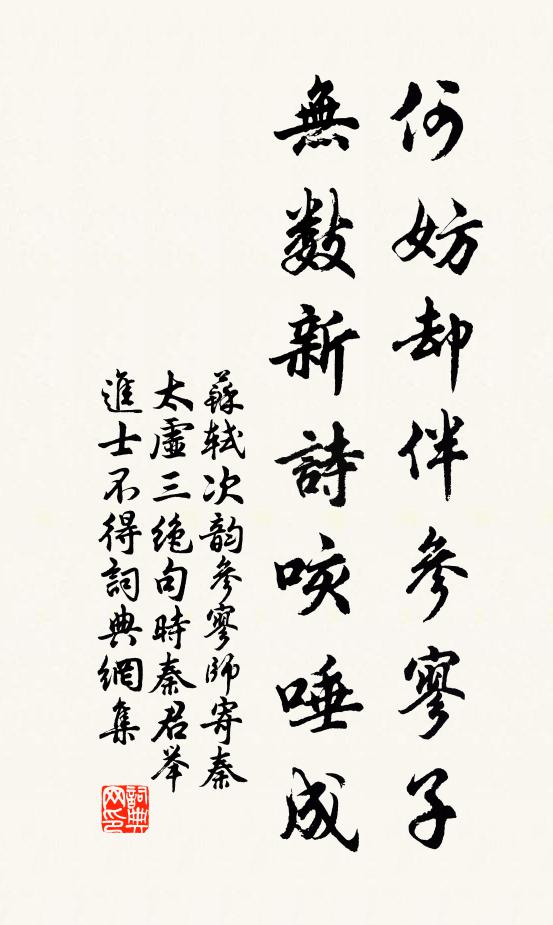 何妨却伴參寥子
無数新詩咳唾成
蘇軾次韵參寥師寄秦
太虛三絶句時秦君举
進士不得詞典網集
詞典网印